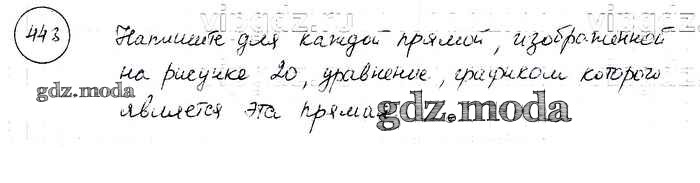 vingdz.ru
443 Напишите для каждой прямой, изображенной
на рисунке 20, уравнение, графиком которого
gdz.moda
является эта прямая
gdz.moda